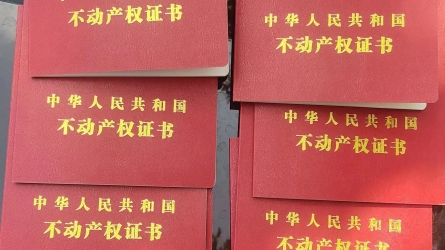 不动产权证书
中华人民共和国
不动产权证书
中华人民共和国
不动产权证书
中华人民共和国
不动产权证书
中华人民共和国
不动产权证书
中华人民共和国
不动产权证书